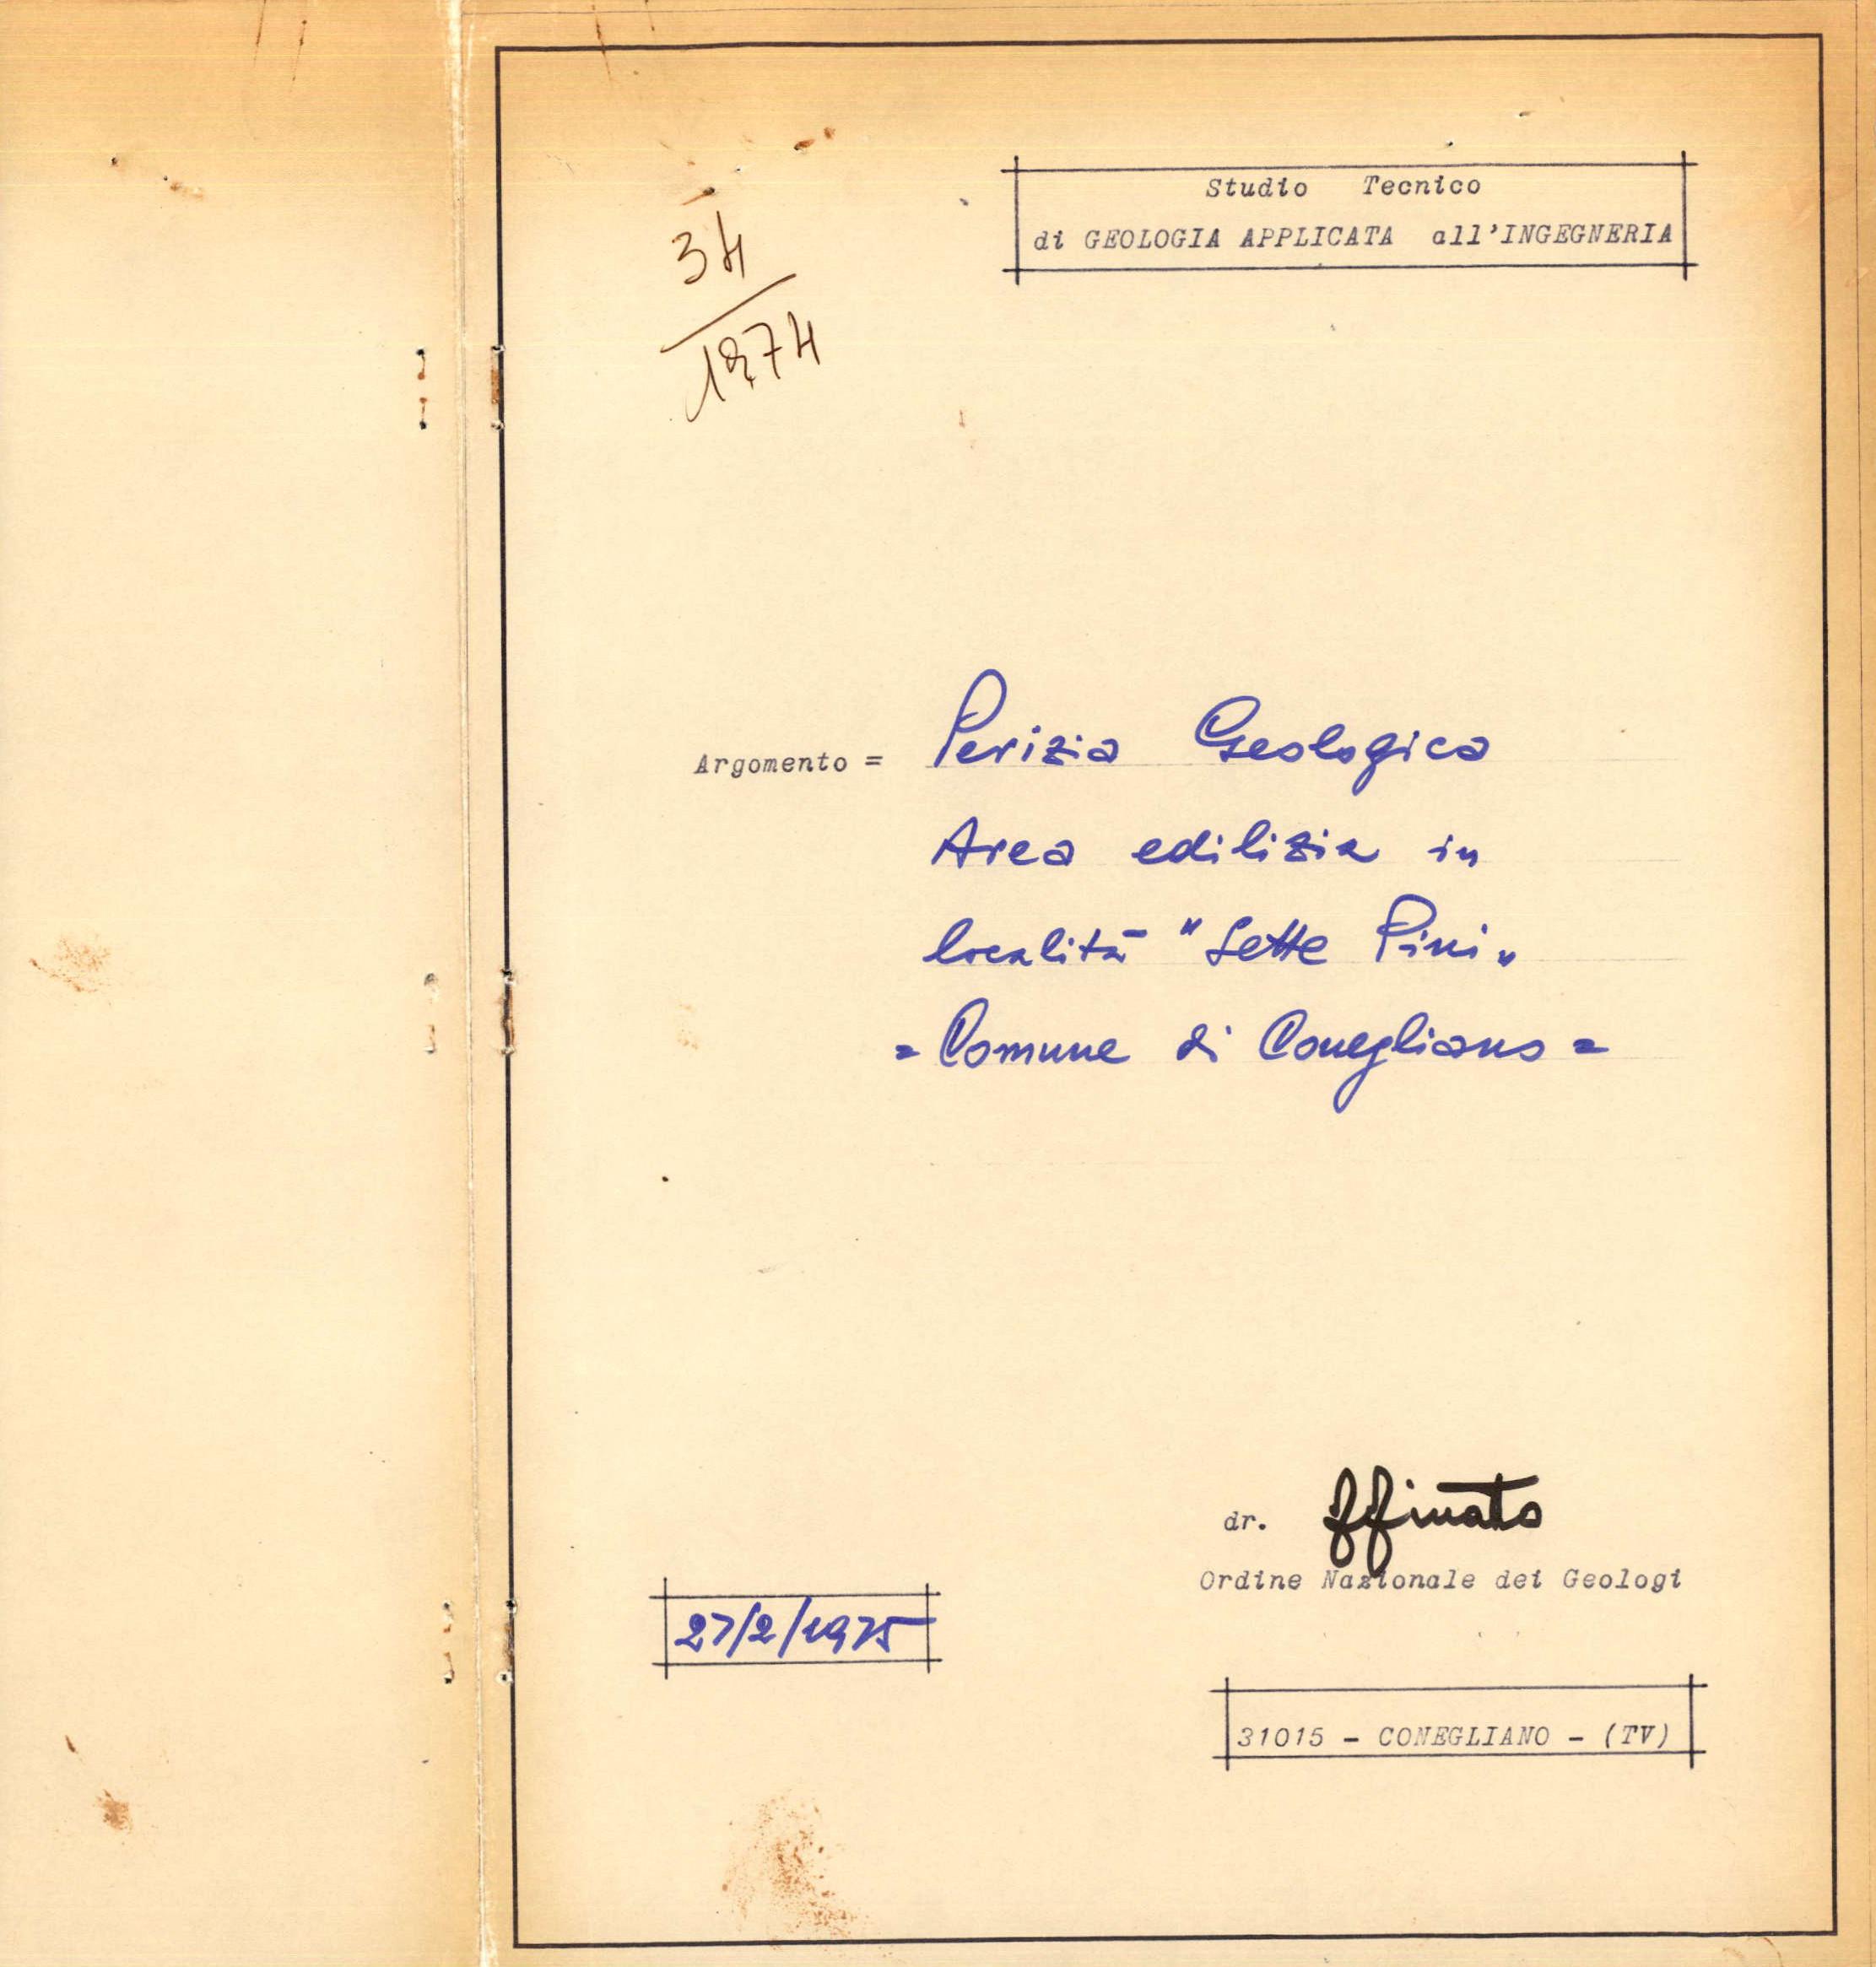 Studio Tecnico
di GEOLOGIA APPLICATA all'INGEGNERIA
34
1974
Argomento = Perizia Geologica
Area edilizia in
località "Sette Pini"
= Comune di Conegliano =
dr.
Ordine Nazionale dei Geologi
27/2/1975
31015 - CONEGLIANO - (TV)